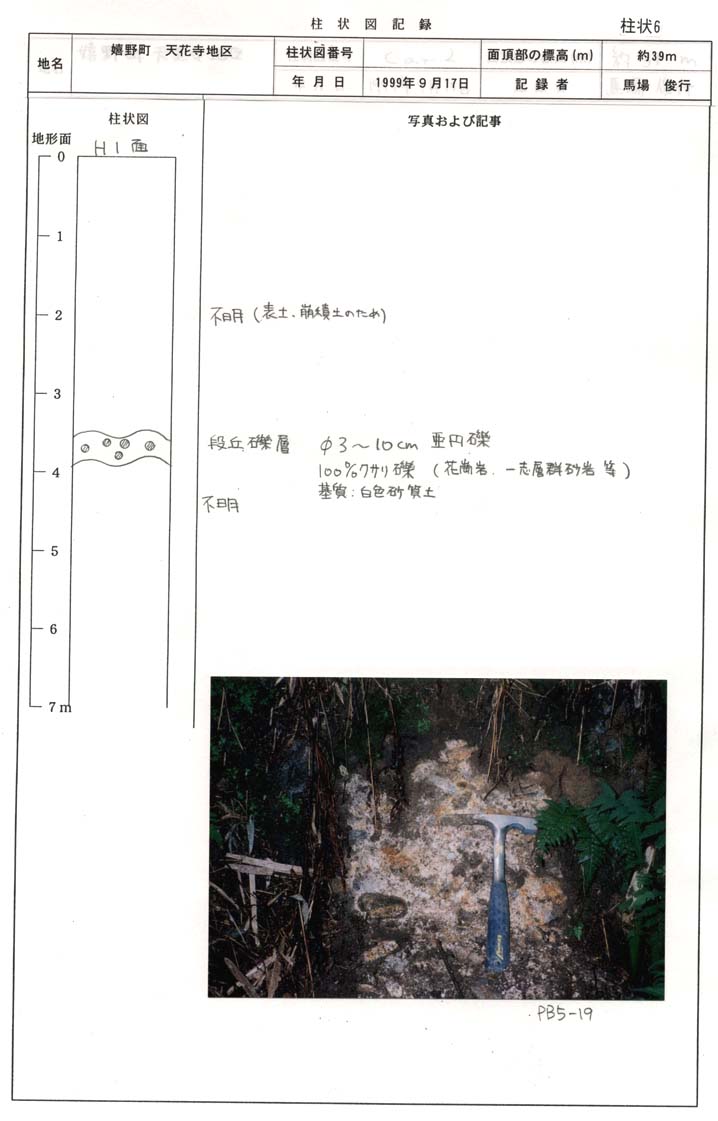 柱状図記録
柱状6
地名
嬉野町 天花寺地区
柱状図番号
面頂部の標高(m)
約39m
年月日
1999年9月17日
記録者
馬場 俊行
柱状図
写真および記事
地形面
H1面
0
1
2
不明 (表土、崩積土のため)
3
段丘礫層 φ3～10cm 亜円礫
4
100%クサリ礫 (花崗岩、一志層群砂岩 等)
基質:白色砂質土
不明
5
6
7m
PB5-19